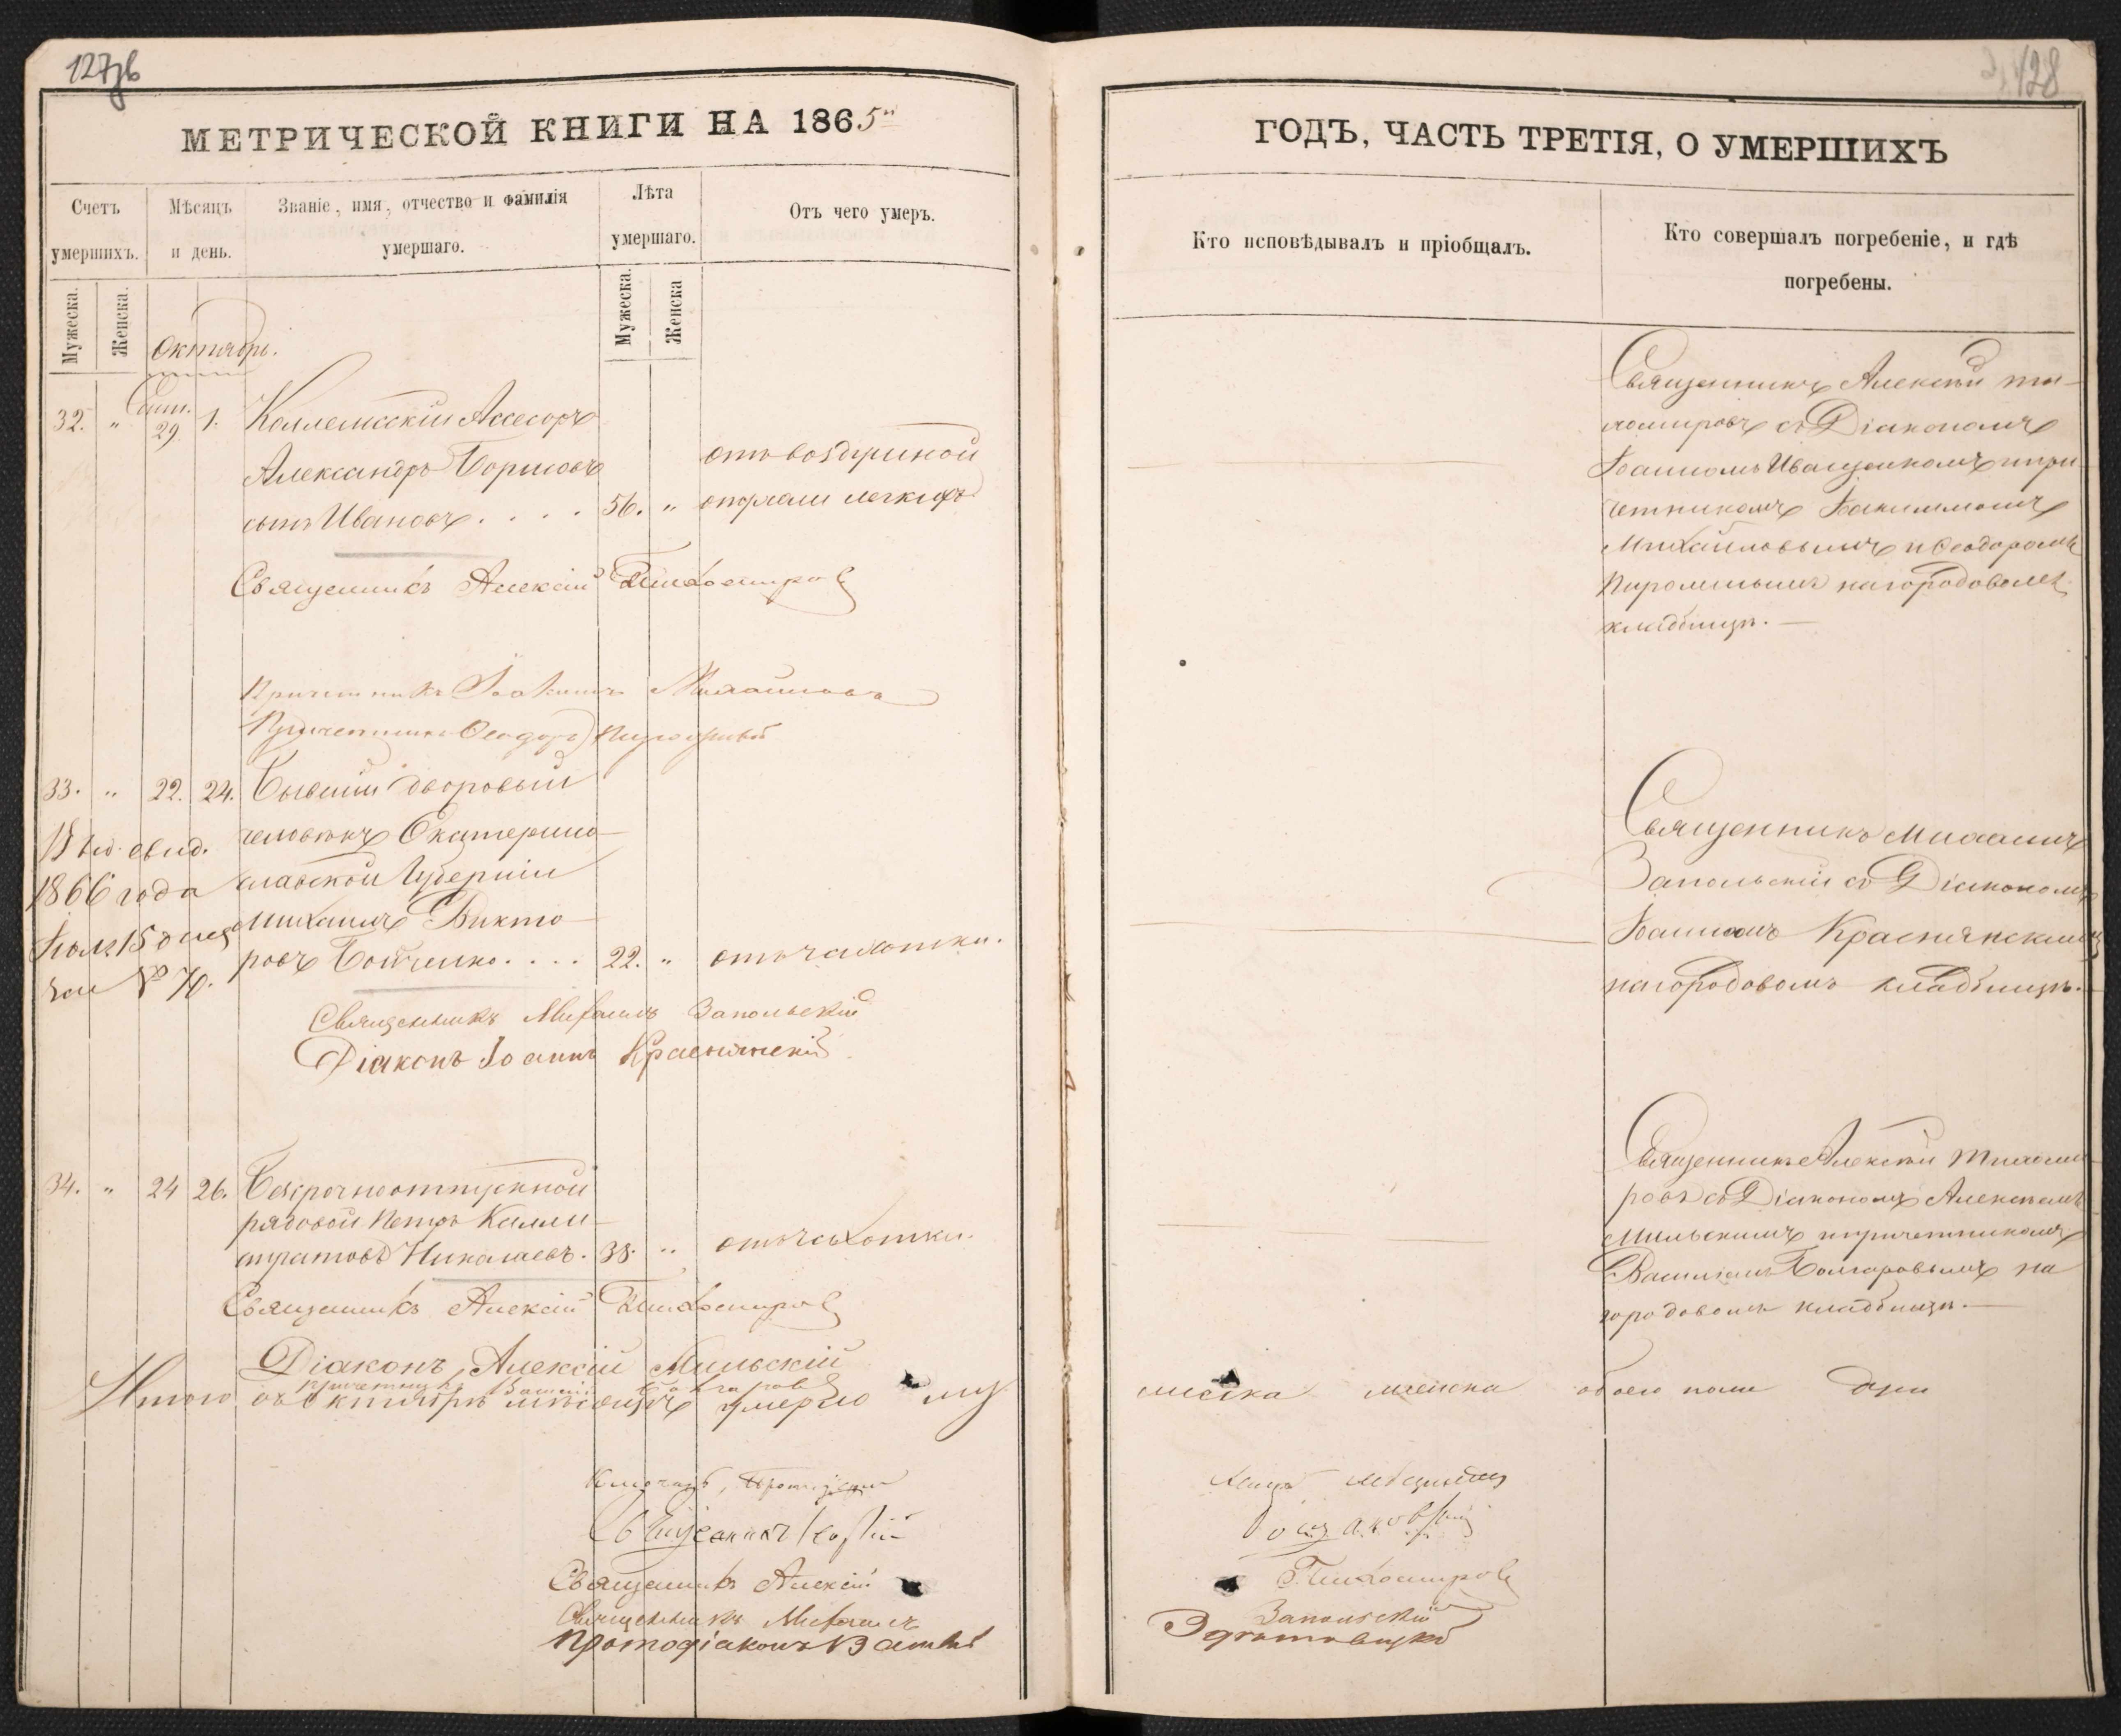 127зв
128
МЕТРИЧЕСКОЙ КНИГИ НА 1865й
ГОДЪ, ЧАСТЬ ТРЕТІЯ, О УМЕРШИХЪ
Счетъ умершихъ.
Мѣсяцъ и день.
Званіе, имя, отчество и фамилія умершаго.
Лѣта умершаго.
Отъ чего умеръ.
Кто исповѣдывалъ и пріобщалъ.
Кто совершалъ погребеніе, и гдѣ погребены.
Мужеска.
Женска.
Мужеска.
Женска
Октябрь.
32. " Сент. 29. 1. Коллежскій Ассесоръ
Александръ Борисовъ
сынъ Ивановъ. . . . 56. "
отъ воздушной
опухали легкихъ
Священникъ Алексѣй Ти-
хомировъ съ Діакономъ
Іоанномъ Иващенкомъ и при-
четникомъ Іоакимомъ
Михайловымъ и Ѳеодоромъ
на городовомъ
кладбищѣ. —
Священникъ Алексій Тихомировъ
Причетникъ Іоакимъ Михайловъ
Причетникъ Ѳеодоръ
33. " 22. 24. Бывшій дворовый
человѣкъ Екатерино-
славской Губерніи
Михаилъ Викто-
ровъ Бойченко. . . . 22. " отъ чахотки.
Выд. свид.
1866 года
15 дня
за № 70.
Священникъ Михаилъ
Запольскій съ Діакономъ
Іоанномъ Краснянскимъ
на городовомъ кладбищѣ.
Священникъ Михаилъ Запольскій
Діаконъ Іоаннъ Краснянскій
34. " 24 26. Безсрочноотпускной
рядовой Петръ Калли-
стратовъ Николаевъ. 38. " отъ чахотки.
Священникъ Алексѣй Тихоми-
ровъ съ Діакономъ Алексѣемъ
Мильскимъ и причетникомъ
Василіемъ Болгаровымъ на
городовомъ кладбищѣ. —
Священникъ Алексій Тихомировъ
Діаконъ Алексій Мильскій
причетникъ Василій Болгаровъ
Итого въ Октябрѣ мѣсяцѣ умерло му
жеска женска обоего пола три
Ключарь, Протоіерей
Священникъ
Священникъ Алексій Тихомировъ
Священникъ Михаилъ Запольскій
Протодіаконъ Василій